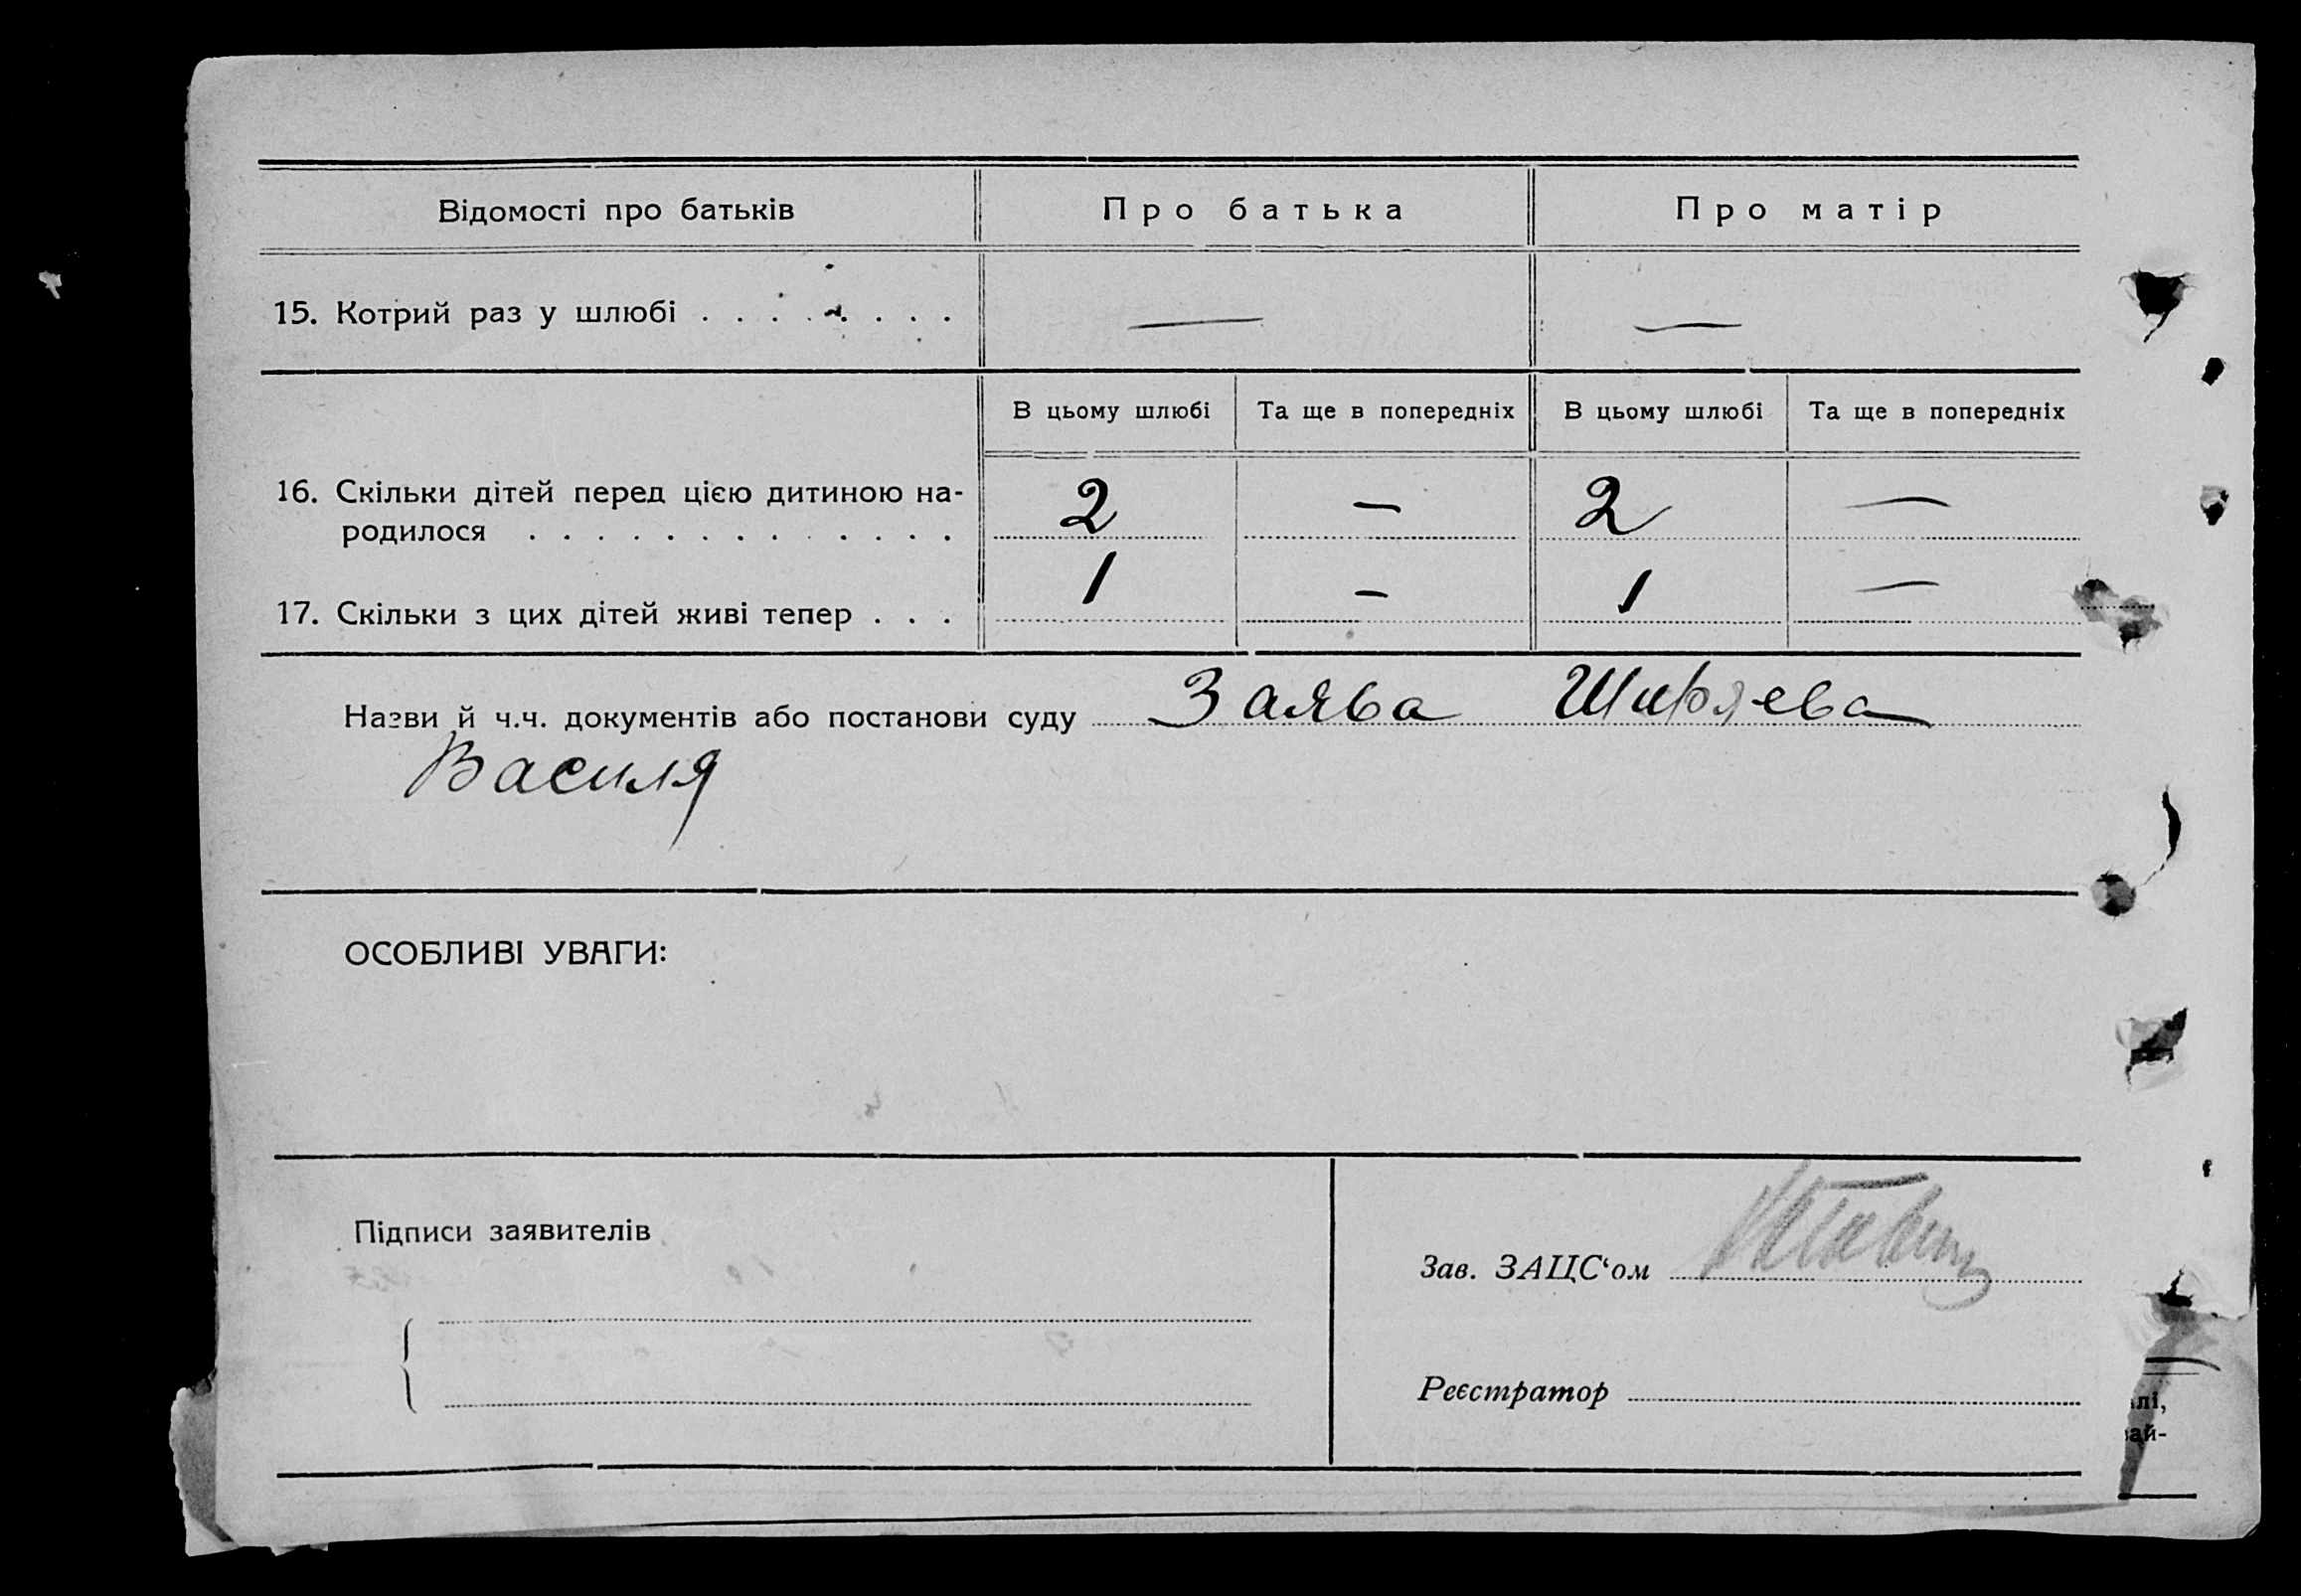 Відомості про батьків Про батька Про матір
15. Котрий раз у шлюбі . . . . . . . . — —
В цьому шлюбі Та ще в попередніх В цьому шлюбі Та ще в попередніх
16. Скільки дітей перед цією дитиною на-
родилося . . . . . . . . . . . . . 2 — 2 —
17. Скільки з цих дітей живі тепер . . . 1 — 1 —
Назви й ч.ч. документів або постанови суду Заява Ширяева
Василя
ОСОБЛИВІ УВАГИ:
Підписи заявителів
Зав. ЗАЦС‘ом
Реєстратор
лі,
ай-